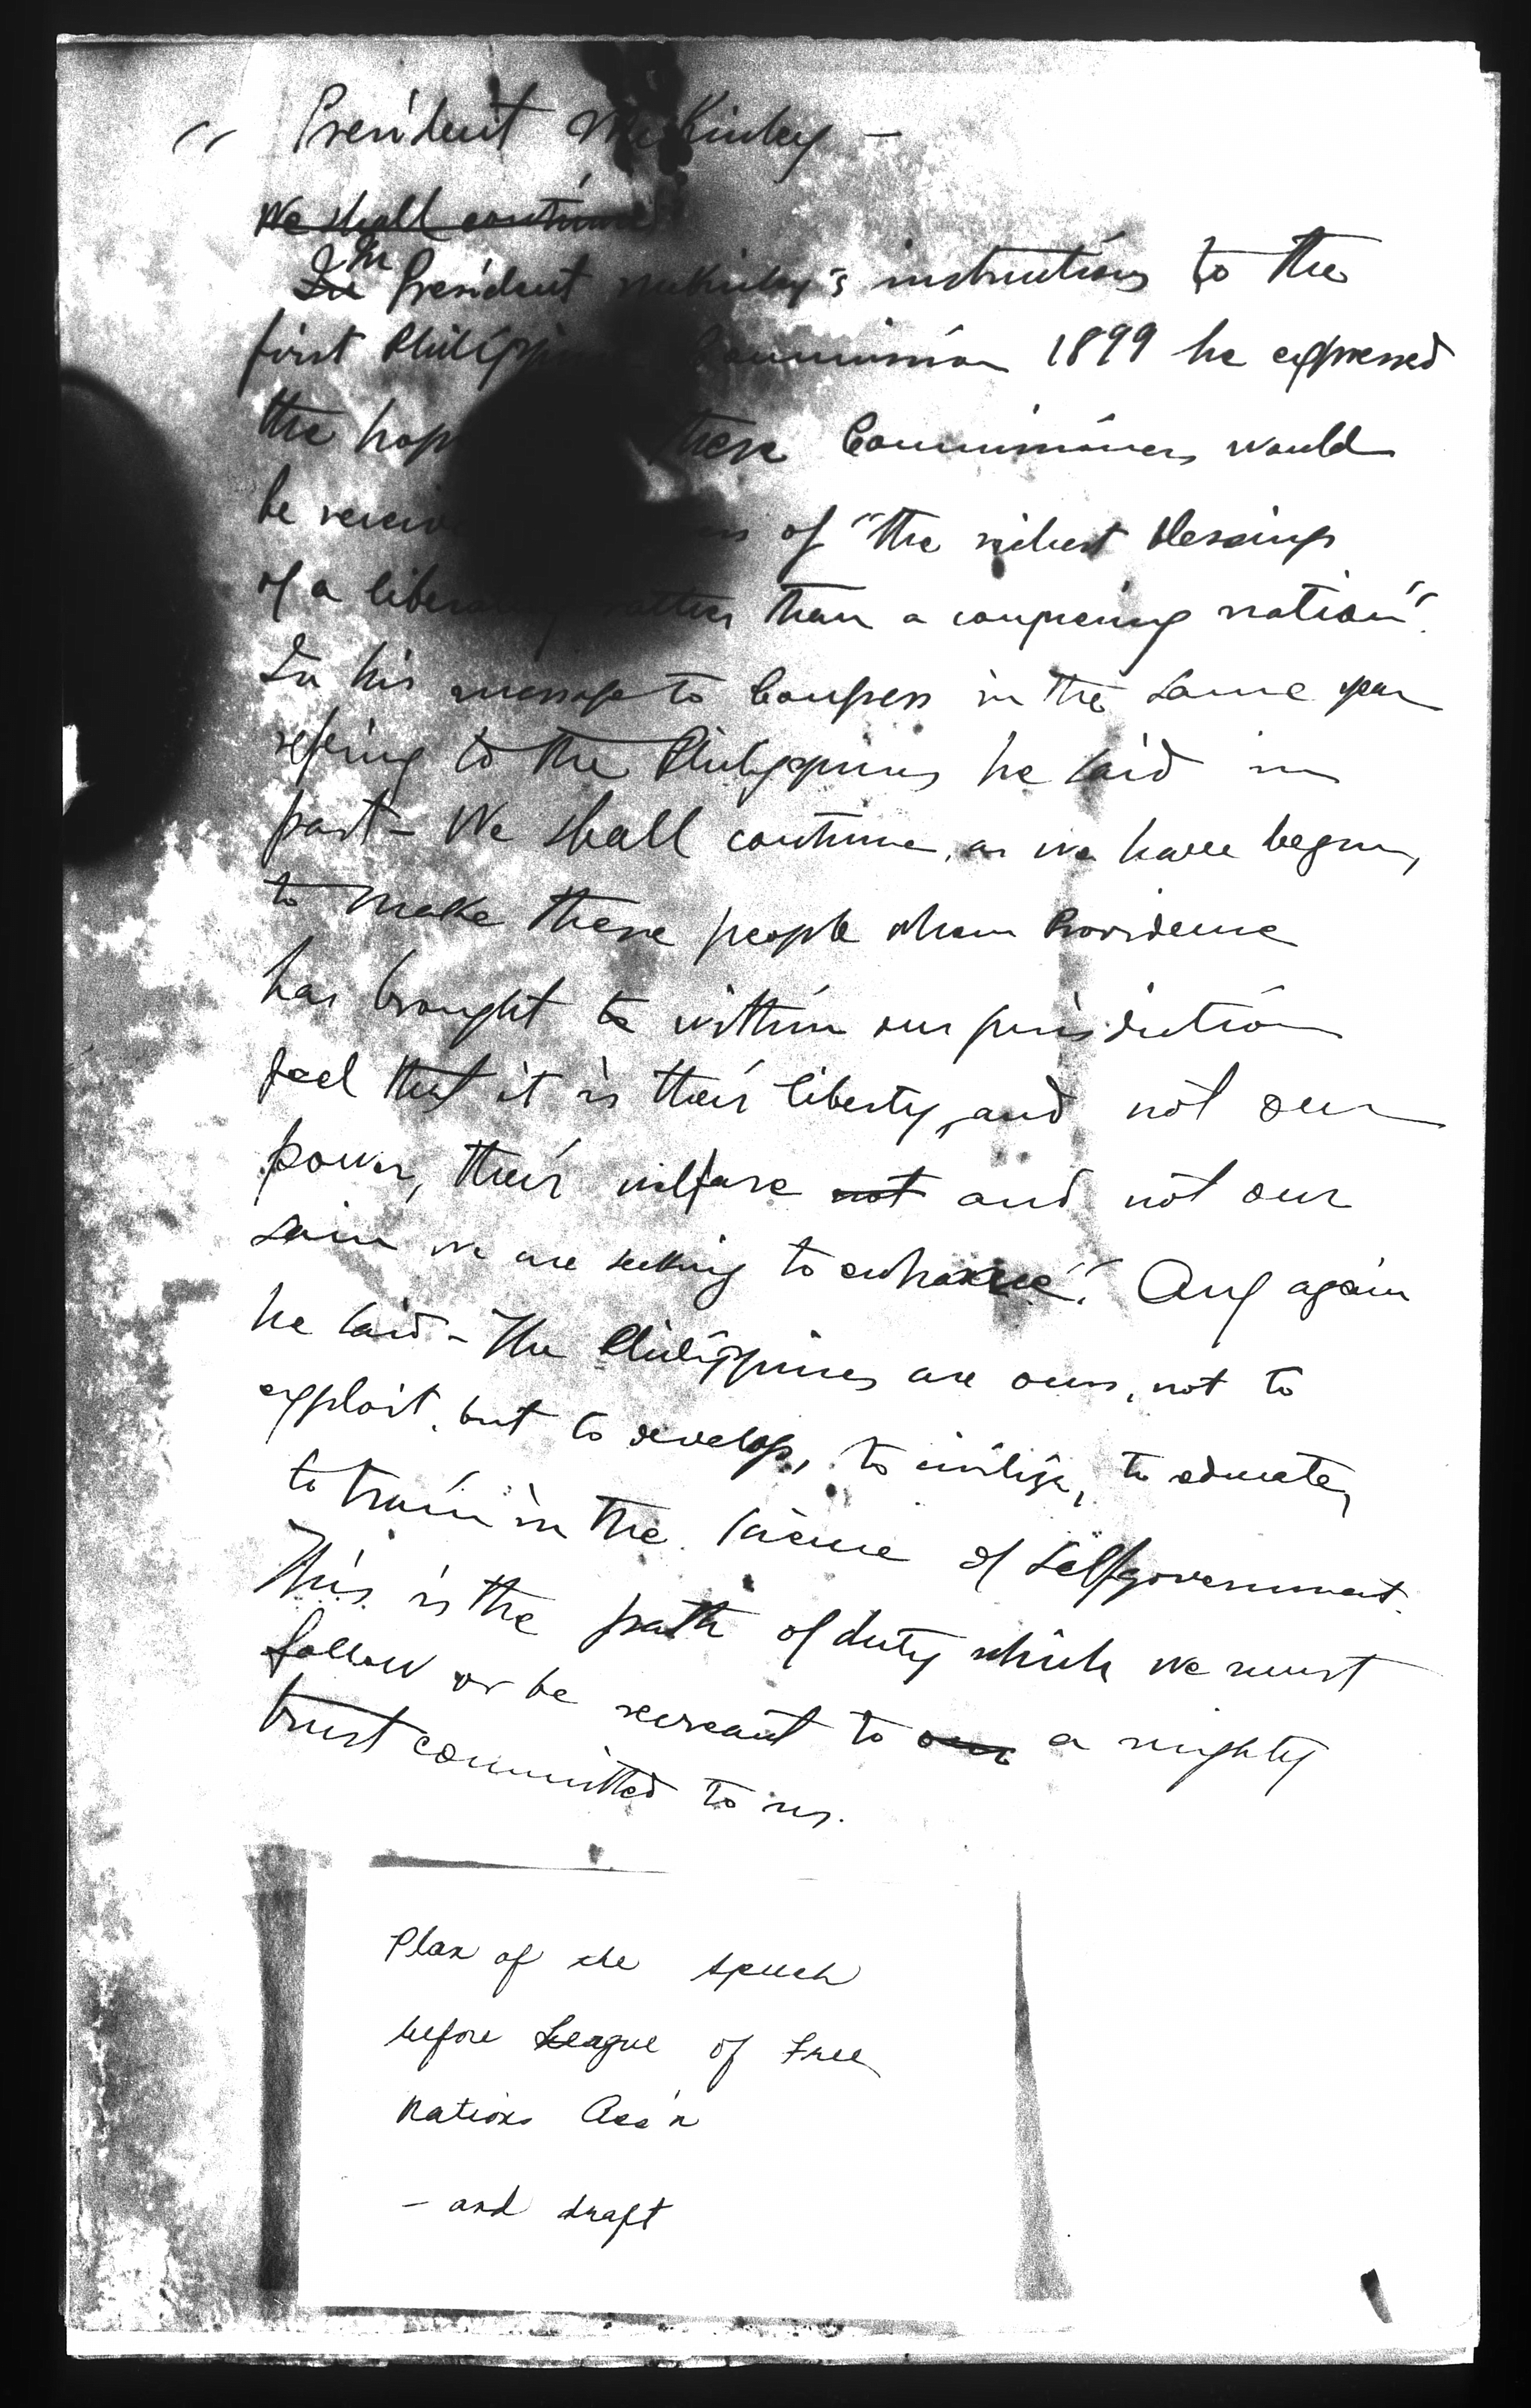 " President McKinley –
We shall continue
In In President McKinley's instructions to the
first Philippine Commission 1899 he expressed
the hope these Commissioners would
be receiv of "the richest blessings
of a liberating rather than a conquering nation".
In his message to Congress in the same year
refering to the Philippines he said in
part – We shall continue, as we have begun,
to make these people whom Providence
has brought to within our jurisdiction
feel that it is their liberty, and not our
power, their welfare not and not our
gain we are seeking to enhance". And again
he said – The Philippines are ours, not to
exploit, but to develop, to civilize, to educate,
to train in the science of selfgovernment.
This is the path of duty which we must
follow or be recreant to our a mighty
trust committed to us.
Plan of the speech
before League of Free
Nations Ass'n
– and draft